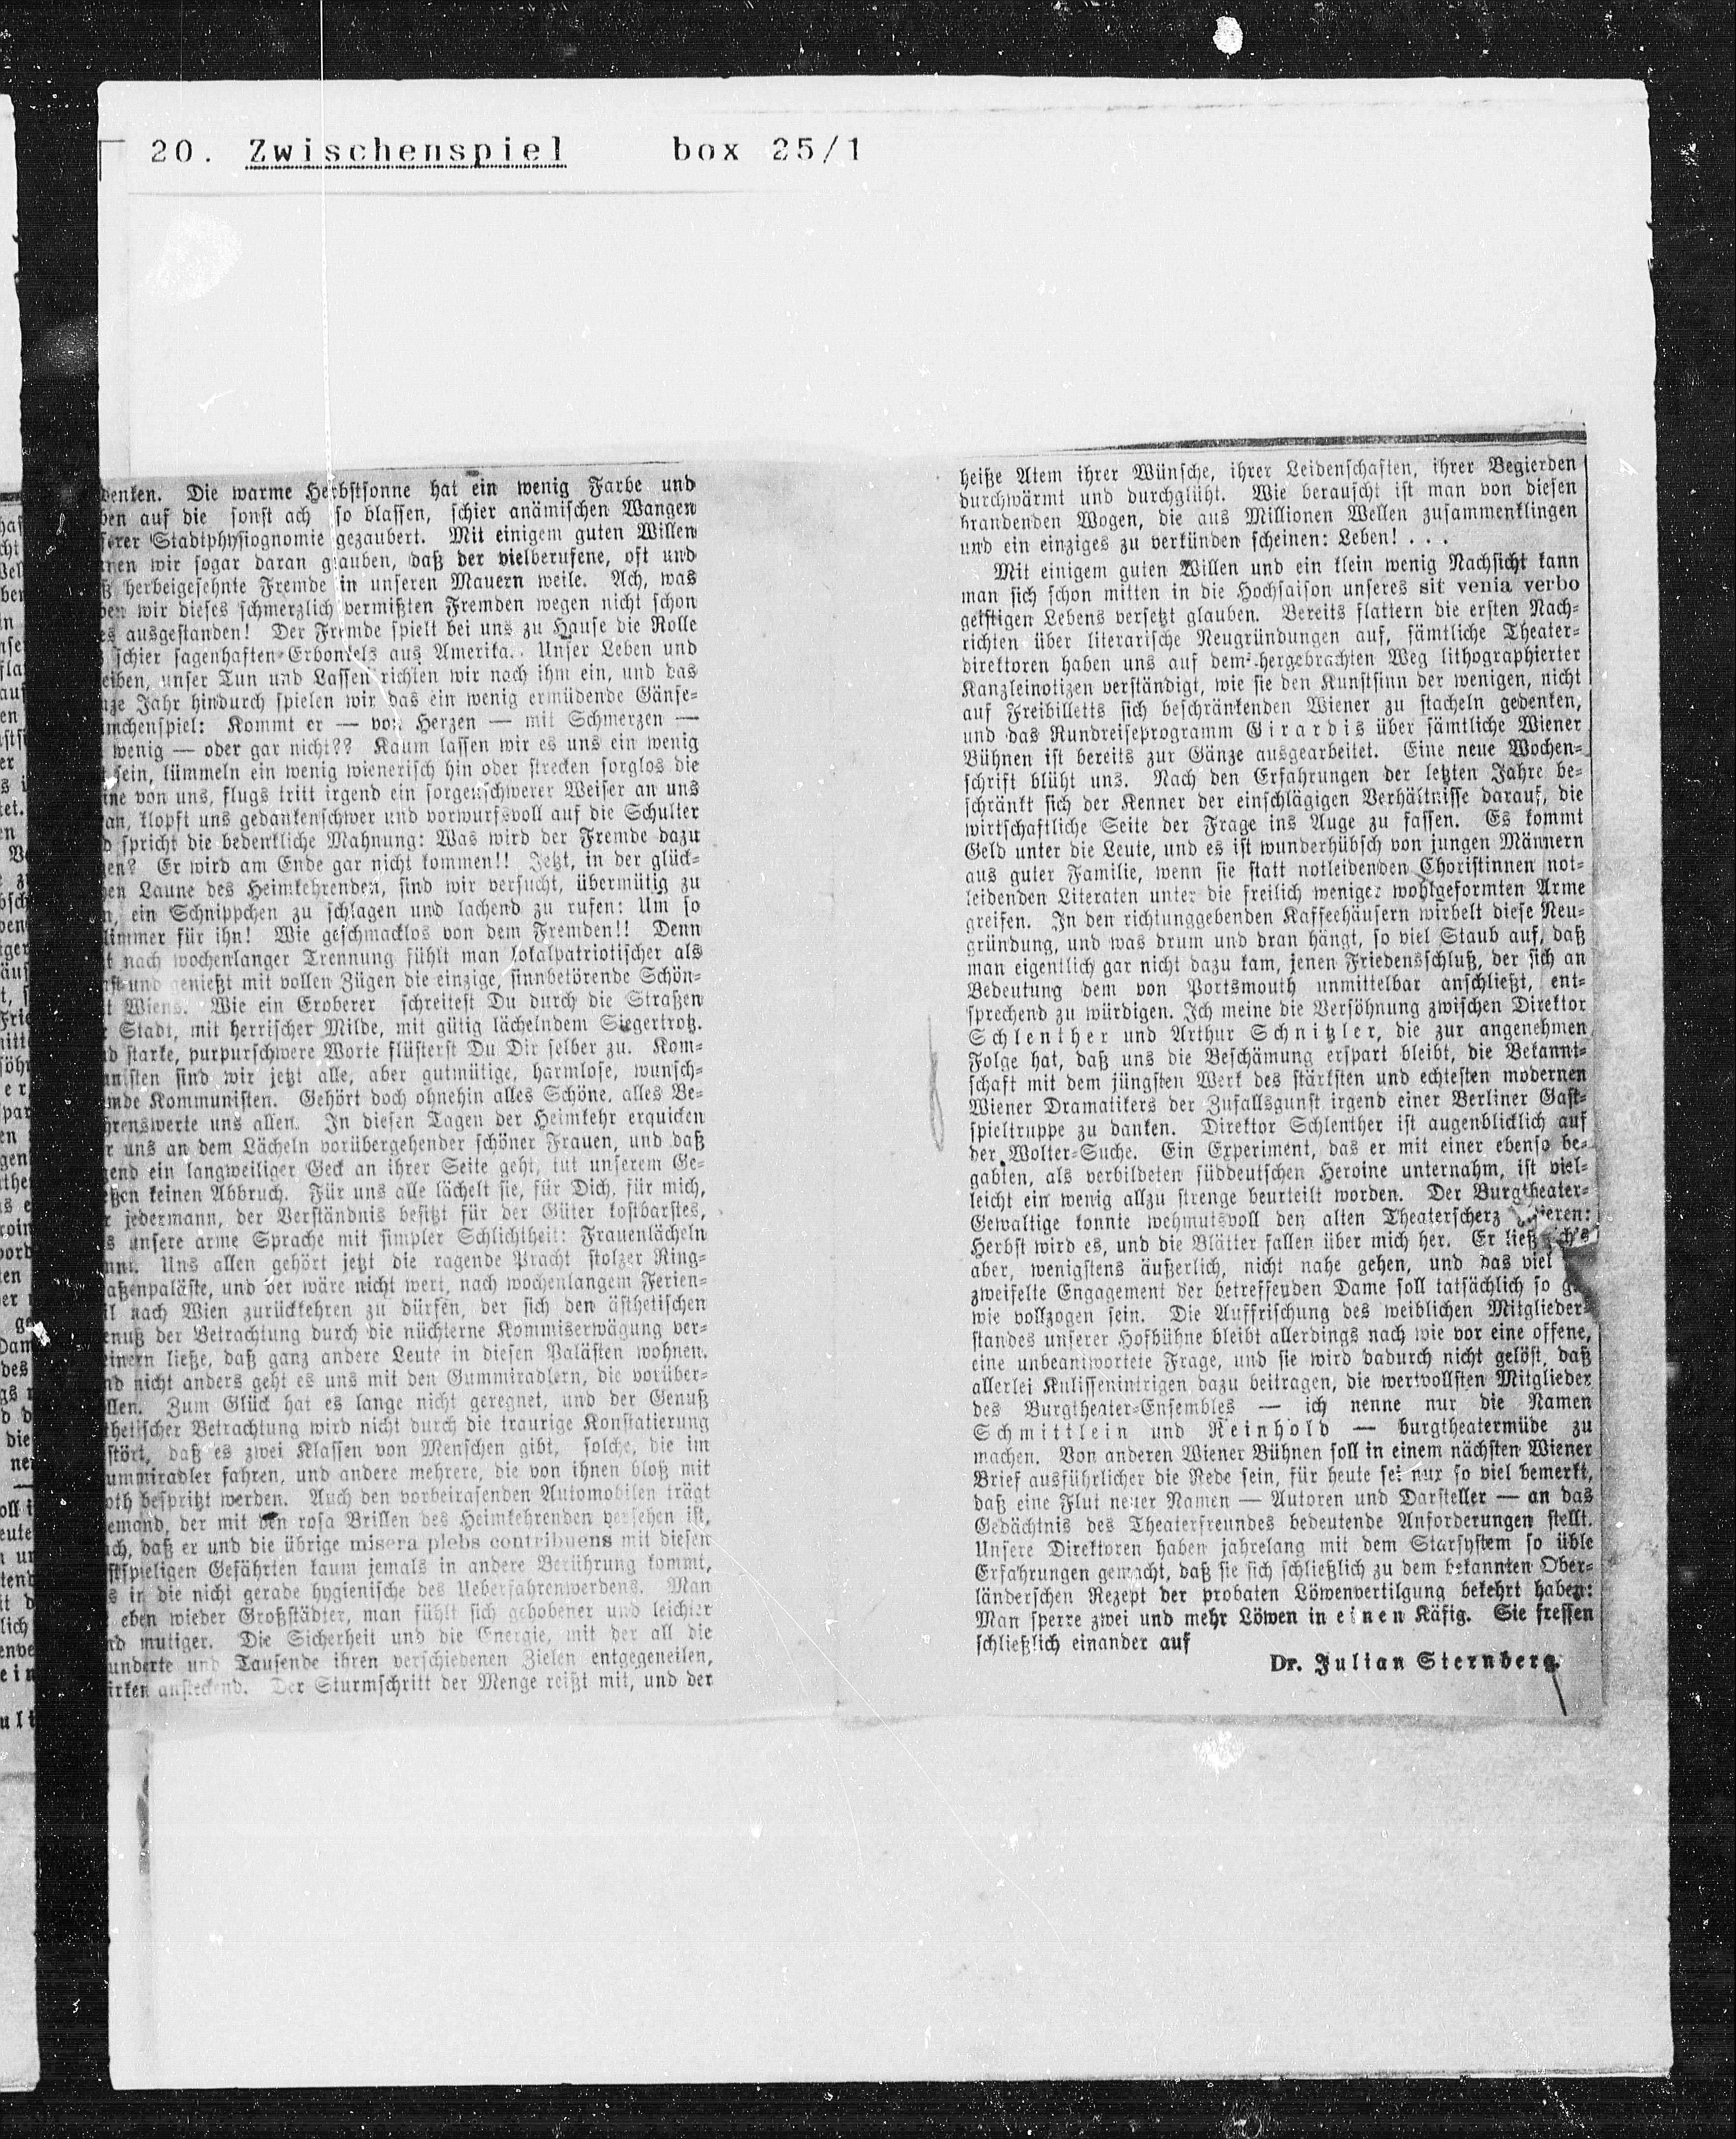 20. Zwischenspiel box 25/1
denken. Die warme Herbstsonne hat ein wenig Farbe und
ben auf die sonst ach so blassen, schier anämischen Wangen
serer Stadtphysiognomie gezaubert. Mit einigem guten Willen
nnen wir sogar daran glauben, daß der vielberufene, oft und
ß herbeigesehnte Fremde in unseren Mauern weile. Ach, was
ben wir dieses schmerzlich vermißten Fremden wegen nicht schon
es ausgestanden! Der Fremde spielt bei uns zu Hause die Rolle
schier sagenhaften Erbonkels aus Amerika. Unser Leben und
eiben, unser Tun und Lassen richten wir nach ihm ein, und das
nze Jahr hindurch spielen wir das ein wenig ermüdende Gänse-
mchenspiel: Kommt er — von Herzen — mit Schmerzen —
wenig — oder gar nicht?? Kaum lassen wir es uns ein wenig
sein, lümmeln ein wenig wienerisch hin oder strecken sorglos die
ine von uns, flugs tritt irgend ein sorgenschwerer Weiser an uns
an, klopft uns gedankenschwer und vorwurfsvoll auf die Schulter
d spricht die bedenkliche Mahnung: Was wird der Fremde dazu
en? Er wird am Ende gar nicht kommen!! Jetzt, in der glück-
hen Laune des Heimkehrenden, sind wir versucht, übermütig zu
n, ein Schnippchen zu schlagen und lachend zu rufen: Um so
limmer für ihn! Wie geschmacklos von dem Fremden!! Denn
t nach wochenlanger Trennung fühlt man lokalpatriotischer als
nst und genießt mit vollen Zügen die einzige, sinnbetörende Schön-
t Wiens. Wie ein Eroberer schreitest Du durch die Straßen
r Stadt, mit herrischer Milde, mit gütig lächelndem Siegertrotz.
d starke, purpurschwere Worte flüsterst Du Dir selber zu. Kom-
unisten sind wir jetzt alle, aber gutmütige, harmlose, wunsch-
mde Kommunisten. Gehört doch ohnehin alles Schöne, alles Be-
hrenswerte uns allen. In diesen Tagen der Heimkehr erquicken
r uns an dem Lächeln vorübergehender schöner Frauen, und daß
gend ein langweiliger Geck an ihrer Seite geht, tut unserem Ge-
eßen keinen Abbruch. Für uns alle lächelt sie, für Dich, für mich,
r jedermann, der Verständnis besitzt für der Güter kostbarstes,
s unsere arme Sprache mit simpler Schlichtheit: Frauenlächeln
nnt. Uns allen gehört jetzt die ragende Pracht stolzer Ring-
aßenpaläste, und der wäre nicht wert, nach wochenlangem Ferien-
il nach Wien zurückkehren zu dürfen, der sich den ästhetischen
enuß der Betrachtung durch die nüchterne Kommiserwägung ver-
einern ließe, daß ganz andere Leute in diesen Palästen wohnen.
nd nicht anders geht es uns mit den Gummiradlern, die vorüber-
llen. Zum Glück hat es lange nicht geregnet, und der Genuß
thetischer Betrachtung wird nicht durch die traurige Konstatierung
stört, daß es zwei Klassen von Menschen gibt, solche, die im
ummiradler fahren, und andere mehrere, die von ihnen bloß mit
oth bespritzt werden. Auch den vorbeirasenden Automobilen trägt
emand, der mit den rosa Brillen des Heimkehrenden versehen ist,
ach, daß er und die übrige misera plebs contribuens mit diesen
stspieligen Gefährten kaum jemals in andere Berührung kommt,
s in die nicht gerade hygienische des Ueberfahrenwerdens. Man
eben wieder Großstädter, man fühlt sich gehobener und leichter
nd mutiger. Die Sicherheit und die Energie, mit der all die
underte und Tausende ihren verschiedenen Zielen entgegeneilen,
irken ansteckend. Der Sturmschritt der Menge reißt mit, und der
heiße Atem ihrer Wünsche, ihrer Leidenschaften, ihrer Begierden
durchwärmt und durchglüht. Wie berauscht ist man von diesen
brandenden Wogen, die aus Millionen Wellen zusammenklingen
und ein einziges zu verkünden scheinen: Leben! . . .
Mit einigem guten Willen und ein klein wenig Nachsicht kann
man sich schon mitten in die Hochsaison unseres sit venia verbo
geistigen Lebens versetzt glauben. Bereits flattern die ersten Nach-
richten über literarische Neugründungen auf, sämtliche Theater-
direktoren haben uns auf dem hergebrachten Weg lithographierter
Kanzleinotizen verständigt, wie sie den Kunstsinn der wenigen, nicht
auf Freibilletts sich beschränkenden Wiener zu stacheln gedenken,
und das Rundreiseprogramm Girardis über sämtliche Wiener
Bühnen ist bereits zur Gänze ausgearbeitet. Eine neue Wochen-
schrift blüht uns. Nach den Erfahrungen der letzten Jahre be-
schränkt sich der Kenner der einschlägigen Verhältnisse darauf, die
wirtschaftliche Seite der Frage ins Auge zu fassen. Es kommt
Geld unter die Leute, und es ist wunderhübsch von jungen Männern
aus guter Familie, wenn sie statt notleidenden Choristinnen not-
leidenden Literaten unter die freilich weniger wohlgeformten Arme
greifen. In den richtunggebenden Kaffeehäusern wirbelt diese Neu-
gründung, und was drum und dran hängt, so viel Staub auf, daß
man eigentlich gar nicht dazu kam, jenen Friedensschluß, der sich an
Bedeutung dem von Portsmouth unmittelbar anschließt, ent-
sprechend zu würdigen. Ich meine die Versöhnung zwischen Direktor
Schlenther und Arthur Schnitzler, die zur angenehmen
Folge hat, daß uns die Beschämung erspart bleibt, die Bekannt-
schaft mit dem jüngsten Werk des stärksten und echtesten modernen
Wiener Dramatikers der Zufallsgunst irgend einer Berliner Gast-
spieltruppe zu danken. Direktor Schlenther ist augenblicklich auf
der Wolter-Suche. Ein Experiment, das er mit einer ebenso be-
gabten, als verbildeten süddeutschen Heroine unternahm, ist viel-
leicht ein wenig allzu strenge beurteilt worden. Der Burgtheater-
Gewaltige konnte wehmutsvoll den alten Theaterscherz ieren:
Herbst wird es, und die Blätter fallen über mich her. Er ließ ch's
aber, wenigstens äußerlich, nicht nahe gehen, und das viel
zweifelte Engagement der betreffenden Dame soll tatsächlich so g
wie vollzogen sein. Die Auffrischung des weiblichen Mitglieder-
standes unserer Hofbühne bleibt allerdings nach wie vor eine offene,
eine unbeantwortete Frage, und sie wird dadurch nicht gelöst, daß
allerlei Kulissenintrigen dazu beitragen, die wertvollsten Mitglieder
des Burgtheater-Ensembles — ich nenne nur die Namen
Schmittlein und Reinhold — burgtheatermüde zu
machen. Von anderen Wiener Bühnen soll in einem nächsten Wiener
Brief ausführlicher die Rede sein, für heute sei nur so viel bemerkt,
daß eine Flut neuer Namen — Autoren und Darsteller — an das
Gedächtnis des Theaterfreundes bedeutende Anforderungen stellt.
Unsere Direktoren haben jahrelang mit dem Starsystem so üble
Erfahrungen gemacht, daß sie sich schließlich zu dem bekannten Ober-
länderschen Rezept der probaten Löwenvertilgung bekehrt haben:
Man sperre zwei und mehr Löwen in einen Käfig. Sie fressen
schließlich einander auf
Dr. Julian Sternberg.